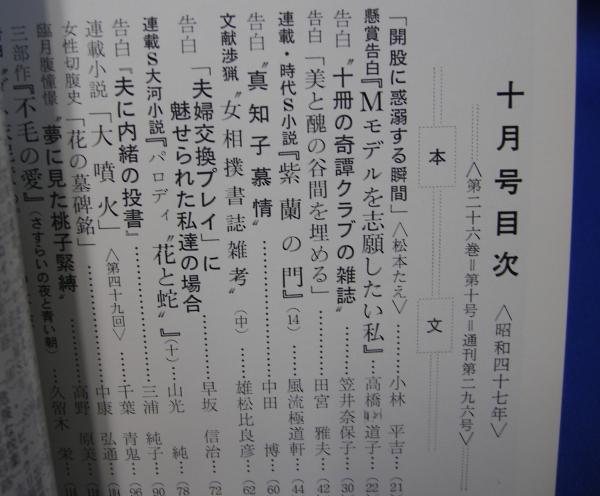 十月号目次
〈昭和四十七年〉
〈第二十六巻=第十号=通刊第二九六号〉
本
文
「開股に惑溺する瞬間」〈松本たえ〉………小林 平吉…(21)
懸賞告白『Mモデルを志願したい私』…高橋 道子…(22)
告白〝十冊の奇譚クラブの雑誌〟…笠井奈保子…(30)
告白「美と醜の谷間を埋める」…田宮 雅夫…(42)
連載・時代S小説『紫蘭の門』(14)…風流極道軒…(44)
告白〝真知子慕情〟…中田 博…(60)
文献渉猟〝女相撲書誌雑考〟(中)…雄松比良彦…(62)
告白「夫婦交換プレイ」に魅せられた私達の場合…早坂 信治…(72)
連載S大河小説『パロディ〝花と蛇〟』(十)…山光 純…(78)
告白『夫に内緒の投書』…三浦 純子…(90)
連載小説「大噴火」〈第四十九回〉…千葉 青鬼…(96)
女性切腹史「花の墓碑銘」…中康 弘通
臨月腹憧憬〝夢に見た桃子緊縛〟…高野 原美
三部作『不毛の愛』(さすらいの夜と青い朝)…久留木 栄